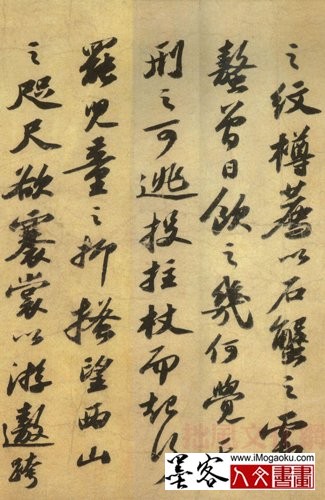 之紋樽薦以石蟹之霜
螯曾日飲之幾何覺天
刑之可逃投拄杖而起行
罷兒童之抑搔望西山
之咫尺欲褰裳以游遨跨
墨客 人文書畫
www.iMogaoku.com